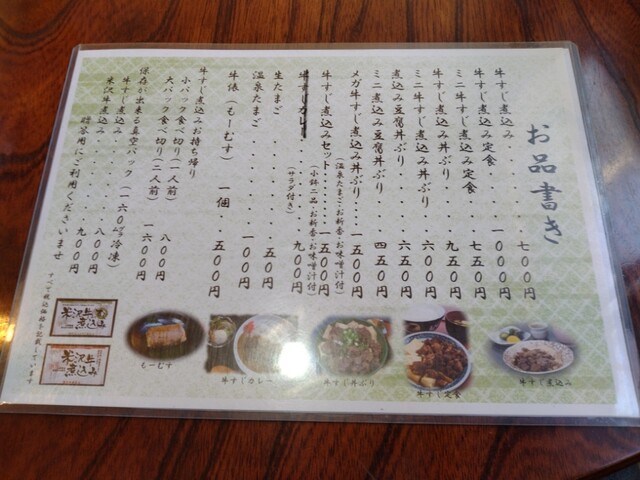 お品書き
牛すじ煮込み・・・・・七〇〇円
牛すじ煮込み定食・・・・一〇〇〇円
ミニ牛すじ煮込み定食・・・七五〇円
牛すじ煮込み丼ぶり・・・・九五〇円
ミニ牛すじ煮込み丼ぶり・・六〇〇円
煮込み豆腐丼ぶり・・・・六五〇円
ミニ煮込み豆腐丼ぶり・・・四五〇円
メガ牛すじ煮込み丼ぶり・・一五〇〇円
(温泉たまご・お新香・お味噌汁付)
牛すじ煮込みセット・・・一五〇〇円
(小鉢二品・お新香・お味噌汁付)
牛すじカレー・・・・九〇〇円
(サラダ付き)
生たまご・・・・・五〇円
温泉たまご・・・・一〇〇円
牛俵(もーむす) 一個・・五〇〇円
牛すじ煮込みお持ち帰り
小パック食べ切り(一人前) 八〇〇円
大パック食べ切り(二人前) 一六〇〇円
保存が出来る真空パック(一六〇㌘冷凍)
牛すじ煮込み・・・・・八〇〇円
米沢牛煮込み・・・・・九〇〇円
贈答用にご利用くださいませ
すべて税込価格を記載しています
牛すじ煮込み
牛すじ定食
牛すじ丼ぶり
牛すじカレー
もーむす
米沢牛煮込み
米沢牛煮込み